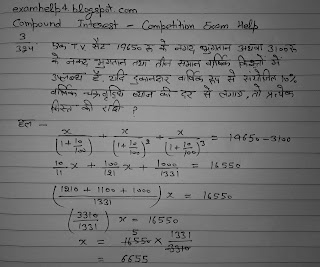 examhelp4.blogspot.com
Compound Interest - Competition Exam Help
3
324 एक T.V. सैट 19650 रू के नगद भुगतान अथवा 3100रू
के नकद भुगतान तथा तीन समान वार्षिक किश्तों में
उपलब्ध है. यदि दुकानदार वार्षिक रूप से संयोजित 10%
वार्षिक चक्रवृध्दि ब्याज की दर से लगाए, तो प्रत्येक
किस्त की राशि ?
हल -
x/(1+10/100) + x/(1+10/100)² + x/(1+10/100)³ = 19650-3100
10/11 x + 100/121 x + 1000/1331 x = 16550
((1210 + 1100 + 1000)/1331) x = 16550
(3310/1331) x = 16550
x = 5 16550 × 1331/3310
= 6655